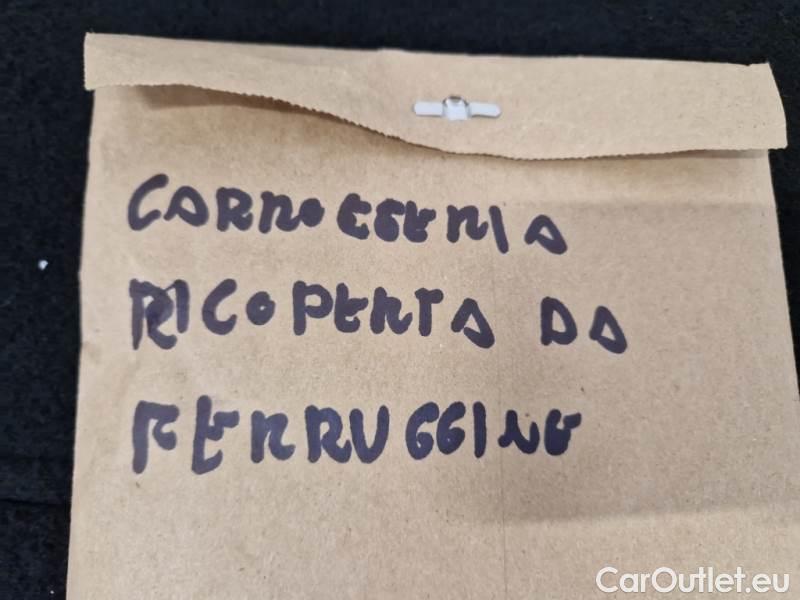 CARROZZERIA
RICOPERTA DA
FERRUGGINE
CarOutlet.eu